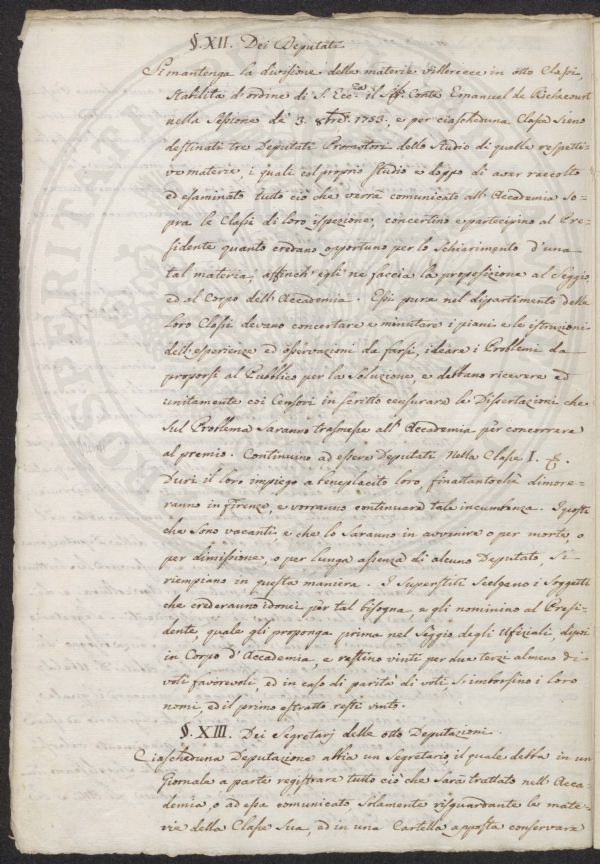 §. XII. Dei Deputati
Si mantenga la divisione delle materie Villerecce in otto Classi,
Stabilita d'ordine di S. Ecc.za il Sig.r Conte Emanuel de Richecourt
nella Sessione de' 3. 8bre 1753, e per ciascheduna Classe sieno
destinati tre Deputati Promotori dello Studio di quelle respetti-
ve materie, i quali col proprio studio e doppo di aver raccolto
ed esaminato tutto ciò che verrà comunicato all'Accademia so-
pra le Classi di loro ispezione, concertino e partecipino al Pre-
sidente quanto credano opportuno per lo schiarimento d'una
tal materia, affinch'egli ne faccia la proposizione al Seggio
ed al Corpo dell'Accademia. Essi pure nel dipartimento della
loro Classe devano concertare e minutare i piani e le istruzioni
dell'esperienze ed osservazioni da farsi, ideare i Problemi da
proporsi al Pubblico per la soluzione, e debbano ricevere ed
unitamente coi Censori in scritto censurare le Dissertazioni che
sul Problema saranno trasmesse all'Accademia per concorrere
al premio. Continuino ad essere Deputati nella Classe I. &.
Duri il loro impiego a beneplacito loro, finattantochè dimore-
ranno in Firenze, e vorranno continuare tale incumbenza. I posti
che sono vacanti, e che lo saranno in avvenire o per morte, o
per dimissione, o per lunga assenza di alcuno Deputato, si
riempiano in questa maniera. I Superstiti Scelgano i Soggetti
che crederanno idonei per tal bisogna, e gli nominino al Presi-
dente, quale gli proponga prima nel Seggio degli Ufiziali, dipoi
in Corpo d'Accademia, e restino vinti per due terzi almeno di
voti favorevoli, ed in caso di parità di voti, si imborsino i loro
nomi, ed il primo estratto resti vinto.
§. XIII. Dei Segretarj delle otto Deputazioni
Ciascheduna Deputazione abbia un Segretario, il quale debba in un
Giornale a parte registrare tutto ciò che sarà trattato nell'Acca-
demia, o ad essa comunicato solamente risguardante le mate-
rie della Classe sua, ed in una Cartella apposta conservare